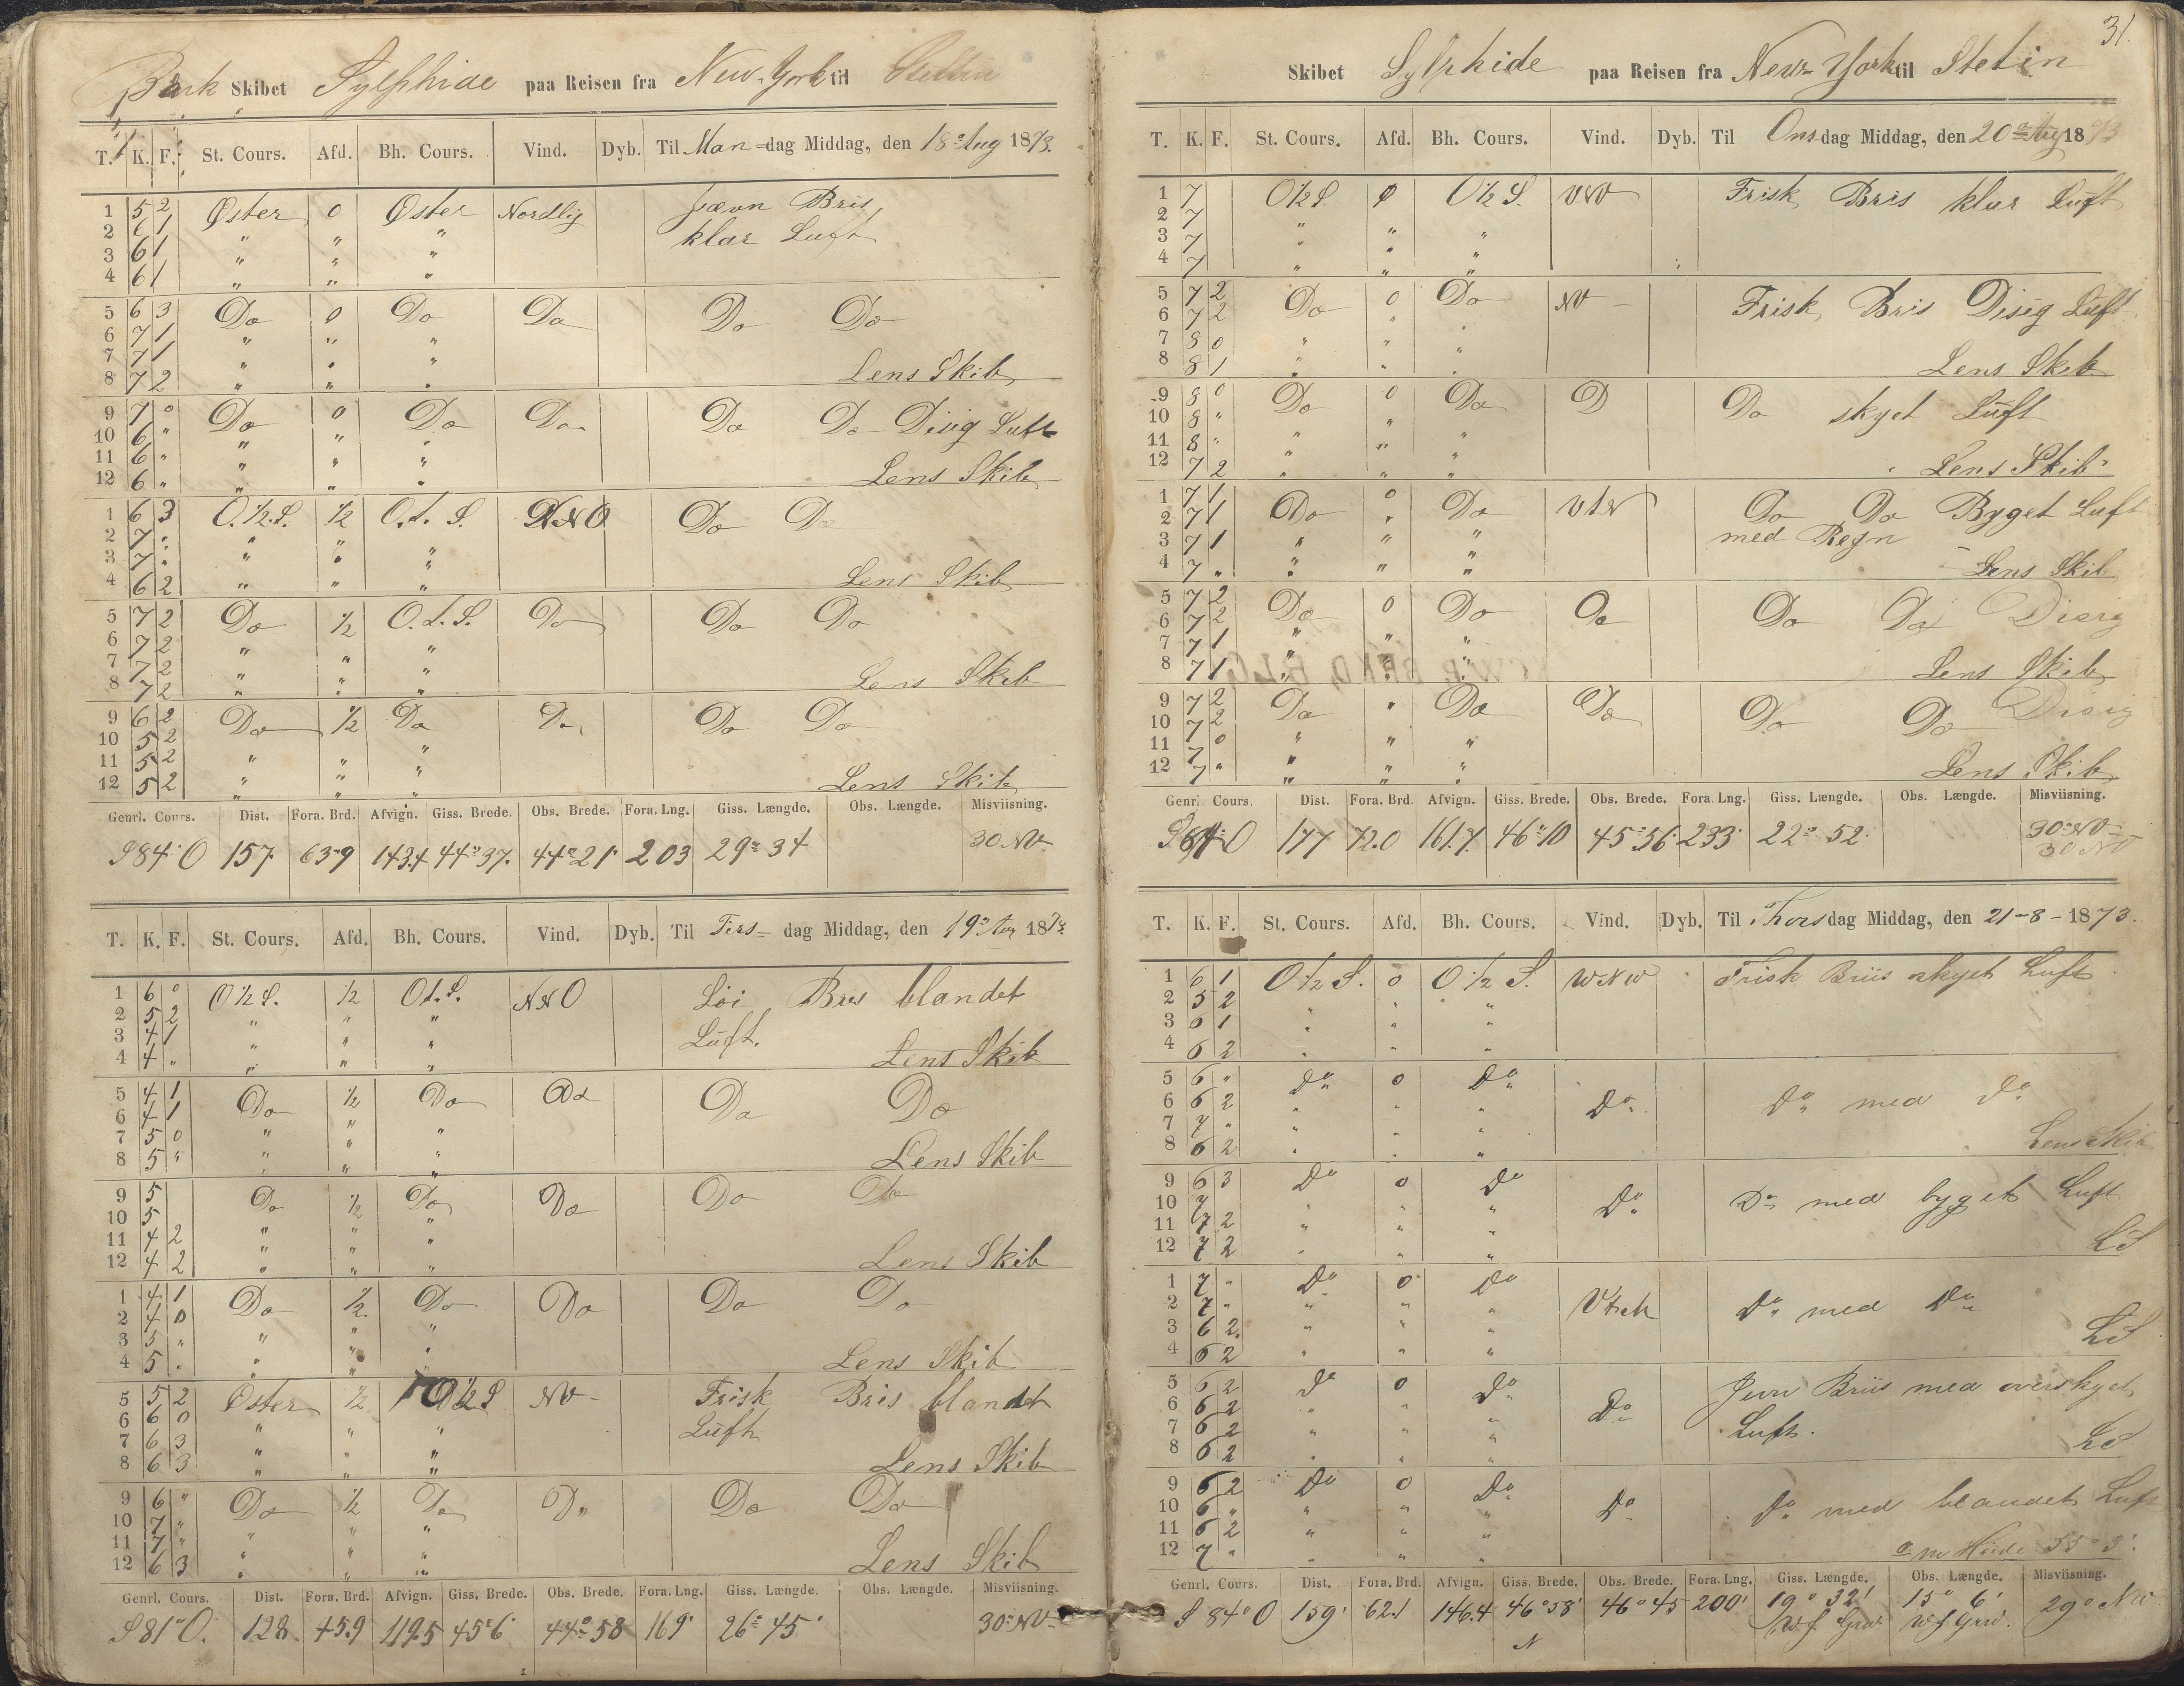 Bark Skibet Sylphide paa Reisen fra New-York til Stettin
T. K. F. St. Cours. Afd. Bh. Cours. Vind. Dyb. Til Man-dag Middag, den 18de Aug 1873.
1 5 2 Øster 0 Øster Nordlig Jævn Bris
2 6 1 " " " klar Luft
3 6 1 " " "
4 6 1 " " "
5 6 3 Do 0 Do Do Do Do
6 7 1 " " "
7 7 1 " " "
8 7 2 " " " Lens Skib
9 7 0 Do 0 Do Do Do Do Disig Luft
10 6 " " " "
11 6 " " " "
12 6 " " " " Lens Skib
1 6 3 O.½.S. ½ O.t.S. NNO Do Do
2 7 " " " "
3 7 " " " "
4 6 2 " " " Lens Skib
5 7 2 Do ½ O.t.S. Do Do Do
6 7 2 " "
7 7 2 " " "
8 7 2 " " " Lens Skib
9 6 2 Do ½ Do Do Do Do
10 5 2 "
11 5 2 " " "
12 5 2 " " " Lens Skib
Genrl. Cours. Dist. Fora. Brd. Afvign. Giss. Brede. Obs. Brede. Fora. Lng. Giss. Længde. Obs. Længde. Misviisning.
S 84° O 157 63.9 143.4 44° 37' 44° 21' 203 29° 34 30 NV
T. K. F. St. Cours. Afd. Bh. Cours. Vind. Dyb. Til Tirs-dag Middag, den 19de Aug 1873
1 6 0 O½S. ½ Ot.S. NNO Löi Bris blandet
2 5 2 " " " Luft.
3 4 1 " " "
4 4 " " " " Lens Skib
5 4 1 Do ½ Do Do Do Do
6 4 1 "
7 5 0 " " "
8 5 " " " " Lens Skib
9 5 Do ½ Do Do Do Do
10 5 " " "
11 4 2 " " "
12 4 2 " " " Lens Skib
1 4 1 Do ½ Do Do Do Do
2 4 0 "
3 5 " " " "
4 5 " " " " Lens Skib
5 5 2 Øster ½ O½S NV Frisk Bris blandet
6 6 0 " " " Luft
7 6 3 " " "
8 6 3 " " " Lens Skib
9 6 " Do ½ Do Do Do Do
10 7 " " " "
11 7 " " " "
12 6 3 " " " Lens Skib
Genrl. Cours. Dist. Fora. Brd. Afvign. Giss. Brede. Obs. Brede. Fora. Lng. Giss. Længde. Obs. Længde. Misviisning.
S 81° O. 128 45.9 119.5 45° 6 44° 58 169' 26° 45' 30° NV
31.
Skibet Sylphide paa Reisen fra New-York til Stetin
T. K. F. St. Cours. Afd. Bh. Cours. Vind. Dyb. Til Onsdag Middag, den 20de Aug 1873
1 7 O½S 0 O½S. VNV Frisk Bris klar Luft
2 7 " " "
3 7 " " "
4 7 " " "
5 7 2 Do 0 Do NV Frisk Bris Disig Luft
6 7 2 " "
7 8 0 " " "
8 8 1 " " " Lens Skib
9 8 0 Do 0 Do D Do skyet Luft
10 8 " "
11 8 " " " "
12 7 2 " " " Lens Skib
1 7 1 Do 0 Do VtN Do Do Byget Luft
2 7 1 " med Regn
3 7 1 " " "
4 7 " " " " Lens Skib
5 7 2 Do 0 Do Do Do Do Disig
6 7 2
7 7 1 " " "
8 7 1 " " " Lens Skib
9 7 2 Do " Do Do Do Do Disig
10 7 2
11 7 0 " " "
12 7 " " " " Lens Skib
Genrl Cours. Dist. Fora. Brd. Afvign. Giss. Brede. Obs. Brede. Fora. Lng. Giss. Længde. Obs. Længde. Misviisning.
177 72.0 161.7 46° 10 45° 36' 233' 22° 52' 30° NV
30 NV
T. K. F. St. Cours. Afd. Bh. Cours. Vind. Dyb. Til Thorsdag Middag, den 21-8-1873.
1 6 1 O½S. 0 O½S. WNW Frisk Briis skyet Luft
2 5 2 " " "
3 6 1 " " "
4 6 2 " " "
5 6 " Do 0 Do Do Do med Do
6 6 2 " " "
7 7 " " " "
8 6 2 " " " Lens Skib
9 6 3 Do 0 Do Do Do med byget Luft
10 7 " " "
11 7 2 " " "
12 7 2 " " " LS
1 7 " Do 0 Do Do med Do
2 7 " " " "
3 6 2 " " "
4 6 2 " " " LS
5 6 2 Do 0 Do Do Jevn Briis med overskyet
6 6 2 " " " Luft.
7 6 2 " " "
8 6 2 " " " LS
9 6 2 Do 0 Do Do Do med blandet Luft
10 6 " " " "
11 6 2 " " "
12 7 " " " " Høide 55° 3'
Genrl. Cours. Dist. Fora. Brd. Afvign. Giss. Brede. Obs. Brede. Fora. Lng. Giss. Længde. Obs. Længde. Misviisning.
S 84° O 159' 62.1 146.4 46° 58' 46° 45 200' 19° 32' 15° 6' 29° NW
N W. f Grw. W. f Grw.